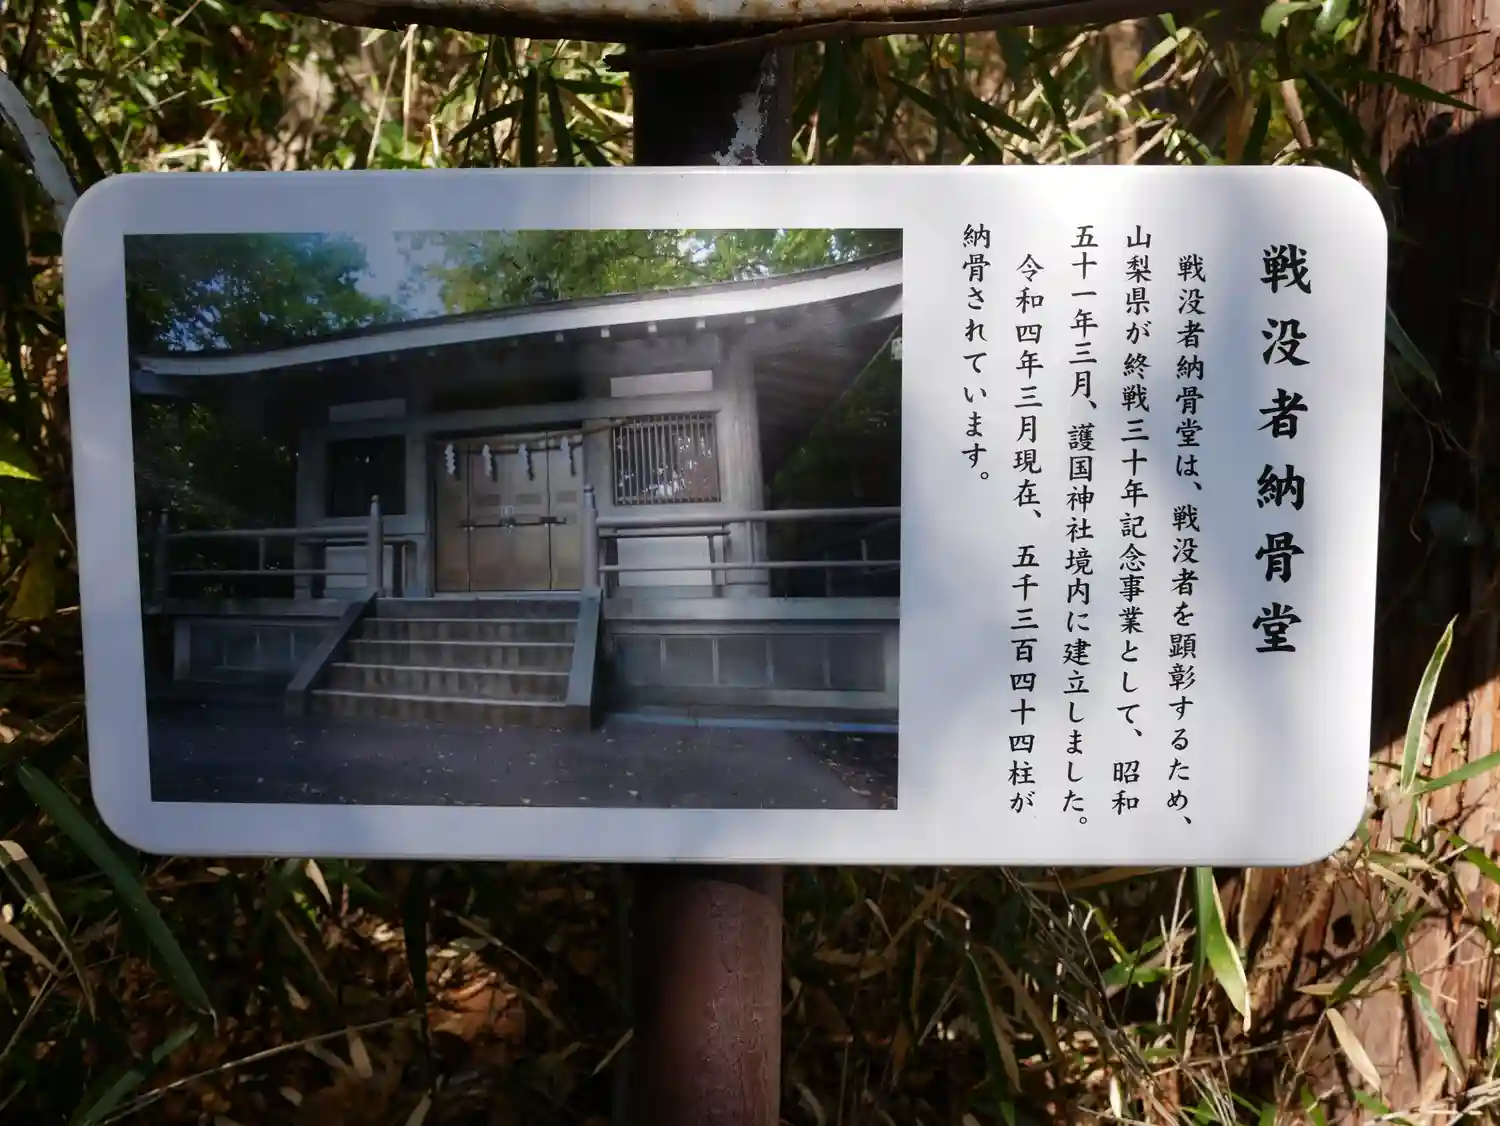 戦没者納骨堂
戦没者納骨堂は、戦没者を顕彰するため、
山梨県が終戦三十年記念事業として、昭和
五十一年三月、護国神社境内に建立しました。
令和四年三月現在、五千三百四十四柱が
納骨されています。